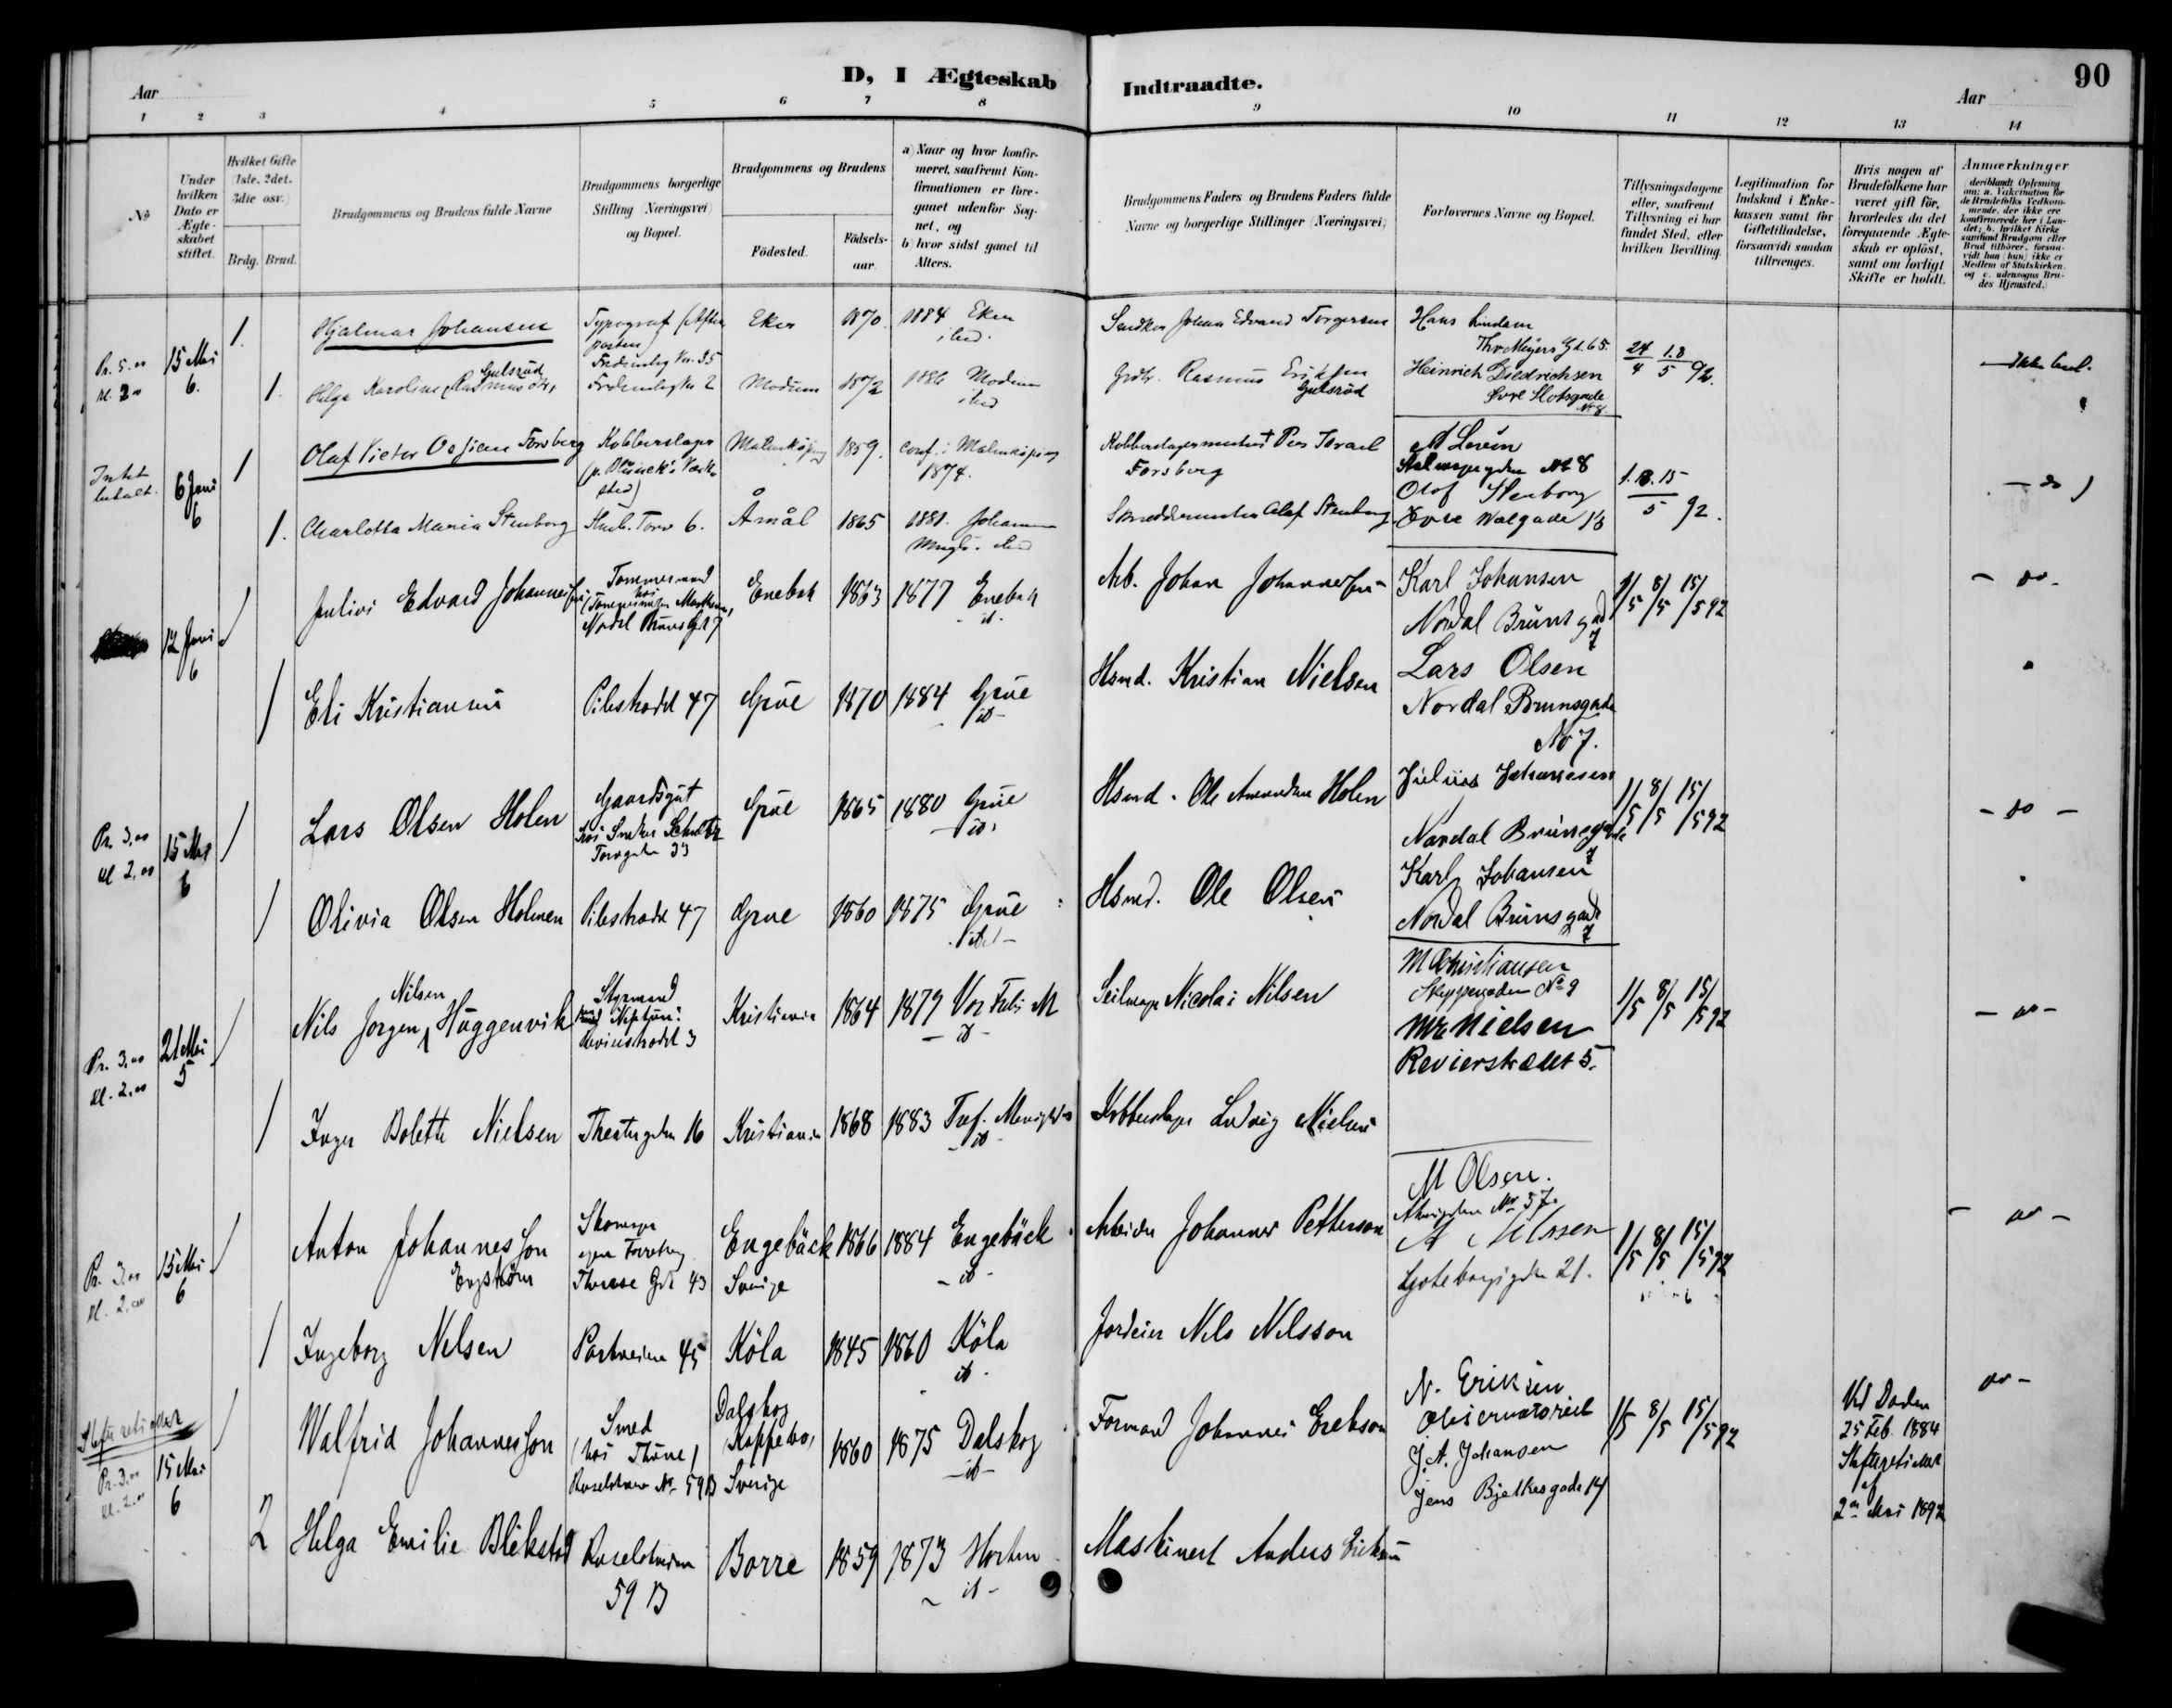 D, I Ægteskab Indtraadte.
90
Aar
Aar
1 2 3 4 5 6 7 8 9 10 11 12 13 14
№
Under hvilken Dato er Ægteskabet stiftet.
Hvilket Gifte (1ste, 2det, 3die osv.)
Brdg. Brud.
Brudgommens og Brudens fulde Navne
Brudgommens borgerlige Stilling (Næringsvei) og Bopæl.
Brudgommens og Brudens
Födested.
Födselsaar.
a) Naar og hvor konfirmeret, saafremt Konfirmationen er foregaaet udenfor Sognet, og
b) hvor sidst gaaet til Alters.
Brudgommens Faders og Brudens Faders fulde Navne og borgerlige Stillinger (Næringsvei)
Forlovernes Navne og Bopæl.
Tillysningsdagene eller, saafremt Tillysning ei har fundet Sted, efter hvilken Bevilling.
Legitimation for Indskud i Enkekassen samt for Giftetilladelse, forsaavidt saadan tiltrænges.
Hvis nogen af Brudefolkene har været gift för, hvorledes da det foregaaende Ægteskab er oplöst, samt om lovligt Skifte er holdt.
Anmærkninger (deriblandt Oplysning om: a. Vakcination för de Brudefolks Vedkommende, der ikke ere konfirmerede her i Landet; b. hvilket Kirkesamfund Brudgom eller Brud tilhörer, forsaavidt han (hun) ikke er Medlem af Statskirken, og c. udensogns Brudes Hjemsted.)
Pr. 5.00 Kl. 2.00
15 Mai 6.
1. Hjalmar Johansen
Typograf (Aftenposten)
Eker 1870 1884 Eker
Snedker Johan Edvard Torgersen
Hans Lindem
Thv. Meyers Gd. 65.
24/4 1.8/5 92.
1. Helga Karoline Rasmusdtr. Gulsrud
Modum 1872 1886 Modum
Grdbr. Rasmus Eriksen Gulsrud
Heinrich Diedrichsen
Øvre Slotsgade № 8
Intet betalt.
6 Juni 6
1 Olaf Victor Forsberg
Kobberslager
Malmköping 1859. conf. i Malmköping 1874.
Kobberslagermester Per Israel Forsberg
A Levin
1.8.15/5 92.
- do
1. Charlotta Maria Stenborg
Torv 6. Åmål 1865 1881. Johannes Mngh.
Skreddermester Olaf Stenborg
Olof Stenborg
12 Juni 6
/ Julius Edvard Johannesen
Tømmermand hos
Nordal Bruns Gd 7
Enebak 1863 1877 Enebak
Arb. Johan Johannesen
Karl Johansen
Nordal Bruns gad 7
1/5 8/5 15/5 92
- do -
/ Eli Kristiansen
Pilestrædet 47 Grue 1870 1884 Grue
Hsmd. Kristian Nielsen
Lars Olsen
Nordal Brunsgade No 7.
Pr. 3.00 Kl 2.00
15 Mai 6
/ Lars Olsen Holen
Gaardsgut
Torvgaden 33
Grue 1865 1880 Grue
Hsmd. Ole Amundsen Holen
Julius Johannesen
Nordal Brunsgade 7
1/5 8/5 15/5 92
- do -
/ Olivia Olsen Holmen
Pilestrædet 47 Grue 1860 1875 Grue
Hsmd. Ole Olsen
Karl Johansen
Nordal Brunsgade 7
Pr. 3.00 Kl. 2.00
21 Mai 5
/ Nils Jorgen Nilsen Huggenvik
Styrmand
Revierstrædet 3
Kristiania 1864 1879 Vor Frels M
Seilmager Nicolai Nilsen
M Christiansen
Skippergaden No 9
1/5 8/5 15/5 92
- do -
Nielsen
Revierstrædet 5.
/ Inga Bolette Nielsen
Theatergaden 16 Kristiania 1868 1883 Tref. Menighed
Kobberslager Ludvig Nielsen
Pr. 3.00 Kl. 2.00
15 Mai 6
/ Anton Johannesson Engström
Skomager egen Forretning
Therese Gd 43
Engebäck Sverige 1866 1884 Engebäck
Arbeider Johannes Petterson
M Olsen.
A Nilssen
Goteborggden 21.
1/5 8/5 15/5 92
- do -
/ Ingeborg Nelsen
Parkveien 45 Köla 1845 1860 Köla
Jordeier Nels Nelsson
Skifteretsattest
Pr. 3.00 Kl. 2.00
15 Mai 6
/ Walfrid Johannesson
Smed (hos Thune)
59 B
Dalskog Sverige 1860 1875 Dalskog
Formand Johannes Erekson
N. Eriksen
Observatoriet
J. A. Johansen
Jens Bjelkesgade 14
1/5 8/5 15/5 92
Ved Døden 25 Feb. 1884 Skifteretsattest af 2den Mai 1892
do -
2 Helga Emilie Blekstad
59 B
Borre 1859 1873 Horten
Maskinest Anders Eriksen